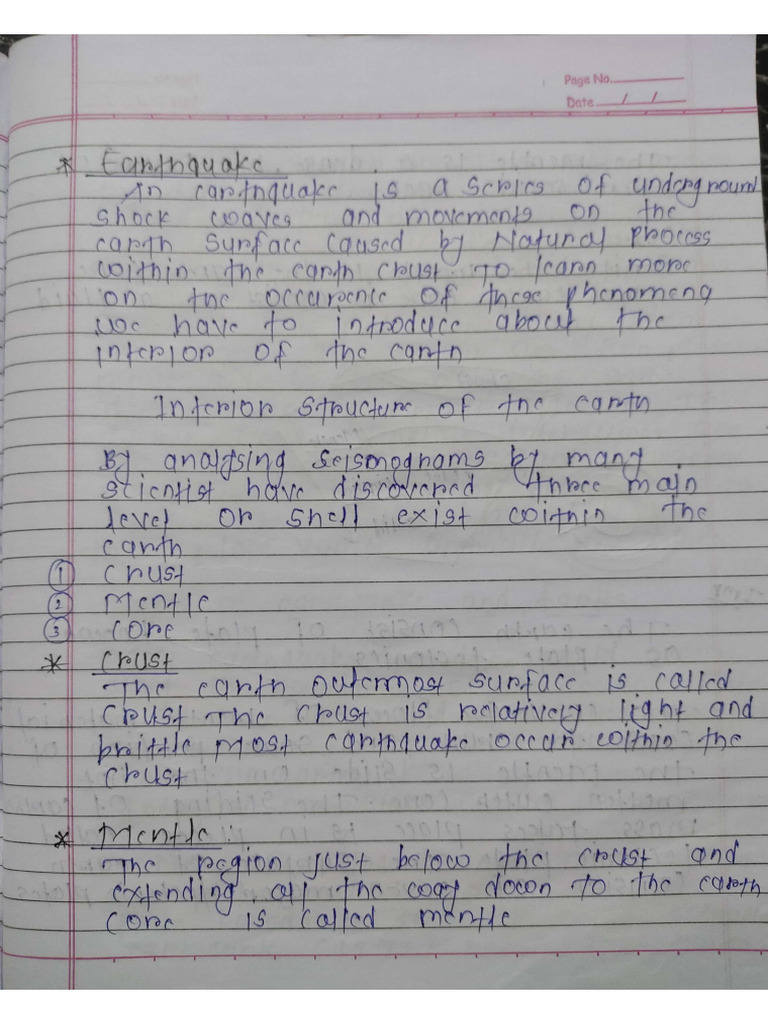 Page No.
Date / /
* Earthquake.
An earthquake is a series of underground
shock waves and movements on the
earth surface caused by Natural Process
within the earth crust. To learn more
on the occurence of these phenomena
we have to introduce about the
interior of the earth
Interior structure of the earth
By analysing seismograms by many
scientist have discovered three main
level or shell exist within the
earth
① Crust
② Mentle
③ Core
* Crust
The earth outermost surface is called
crust The crust is relatively light and
brittle Most earthquake occur within the
crust
* Mentle.
The region just below the crust and
extending all the way down to the earth
core is called mentle